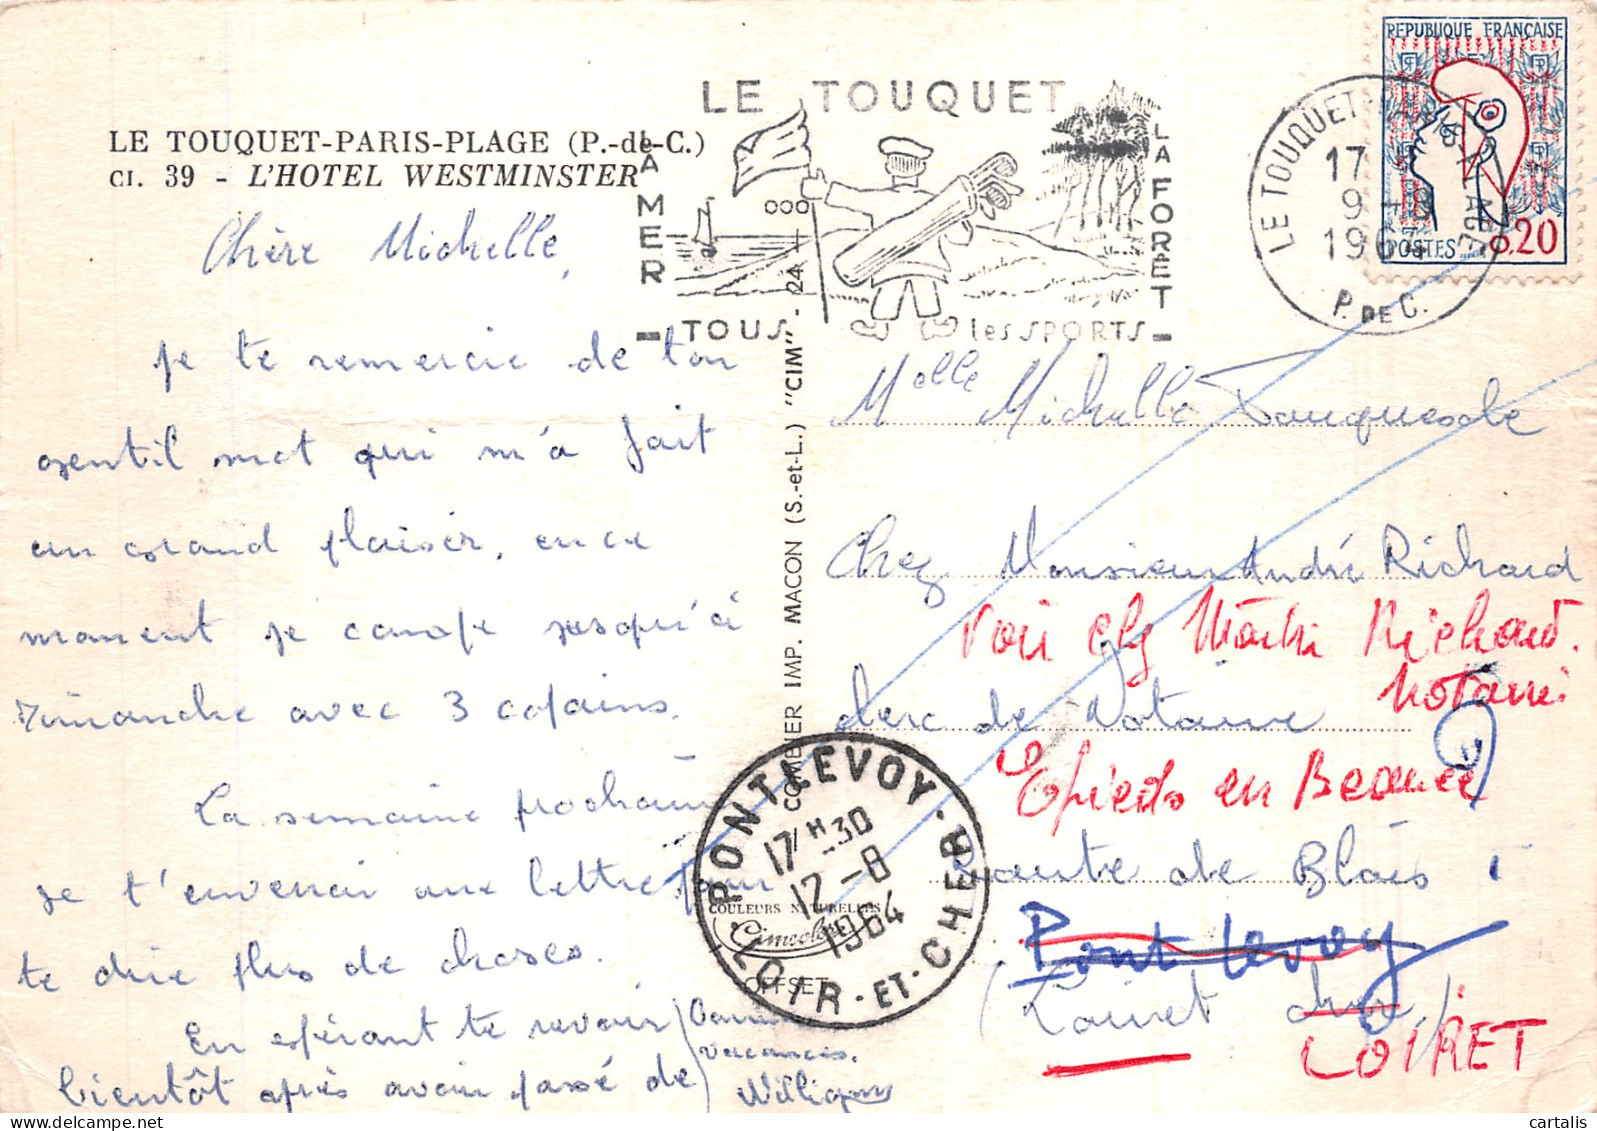 LE TOUQUET-PARIS-PLAGE (P.-de-C.)
CI. 39 - L'HOTEL WESTMINSTER
Chère Michelle,
Je te remercie de ton
gentil mot qui m'a fait
un grand plaisir, en ce
moment je campe jusqu'à
Dimanche avec 3 copains.
La semaine prochaine
je t'enverrai une lettre pour
te dire plus de choses.
En espérant te revoir
bientôt après avoir passé de
bonnes
vacances.
Willigny
LE TOUQUET
LA MER
LA FORET
TOUS les SPORTS
REPUBLIQUE FRANÇAISE
POSTES 0,20
LE TOUQUET-PARIS-PLAGE
17 H
9 - 8
1964
P. DE C.
COMBIER IMP. MACON (S.-et-L.) "CIM" - 24 -
COULEURS NATURELLES
Cimcolor
OFFSET
PONTLEVOY
17 H 30
12 - 8
1964
LOIR-ET-CHER
Melle Michelle
Chez Monsieur André Richard
Voir chez Maître Richard.
Notaire
clerc de Notaire
Epieds en Beauce
Route de Blois
Pont levoy
(Loiret cher)
LOIRET
cartalis